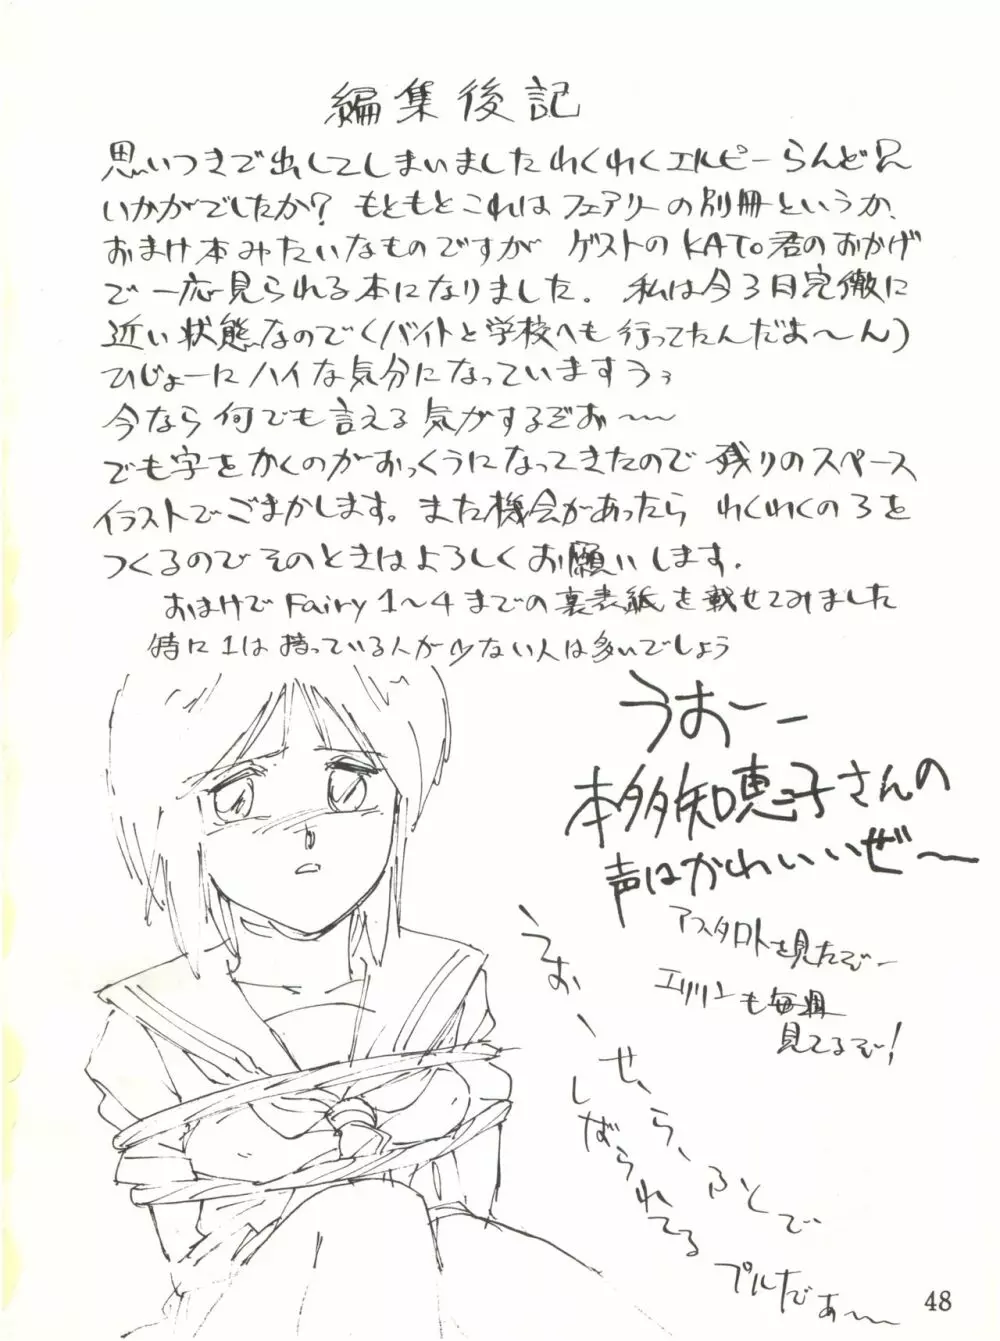 編集後記
思いつきで出してしまいましたわくわくエルピーらんど
いかがでしたか? もともとこれはフェアリーの別冊というか、
おまけ本みたいなものですが ゲストのKATO君のおかげ
で一応見られる本になりました. 私は今3日完徹に
近い状態なので(バイトと学校へも行ってたんだよ〜ん)
ひじょーにハイな気分になっていますうぅ
今なら何でも言える気がするぞお〜〜
でも字をかくのがおっくうになってきたので残りのスペース
イラストでごまかします。また機会があったら わくわくの3を
つくるので そのときはよろしくお願いします.
おまけでFairy1〜4までの裏表紙を載せてみました
特に1は持っている人が少ない人は多いでしょう
うおーー
本多知恵子さんの
声はかわいいぜ〜
アスタロトを見たぞー
エリリンも毎週
見てるぞ!
うおーせ、ら、ふくで
しばられてる
プルだあ〜〜
48